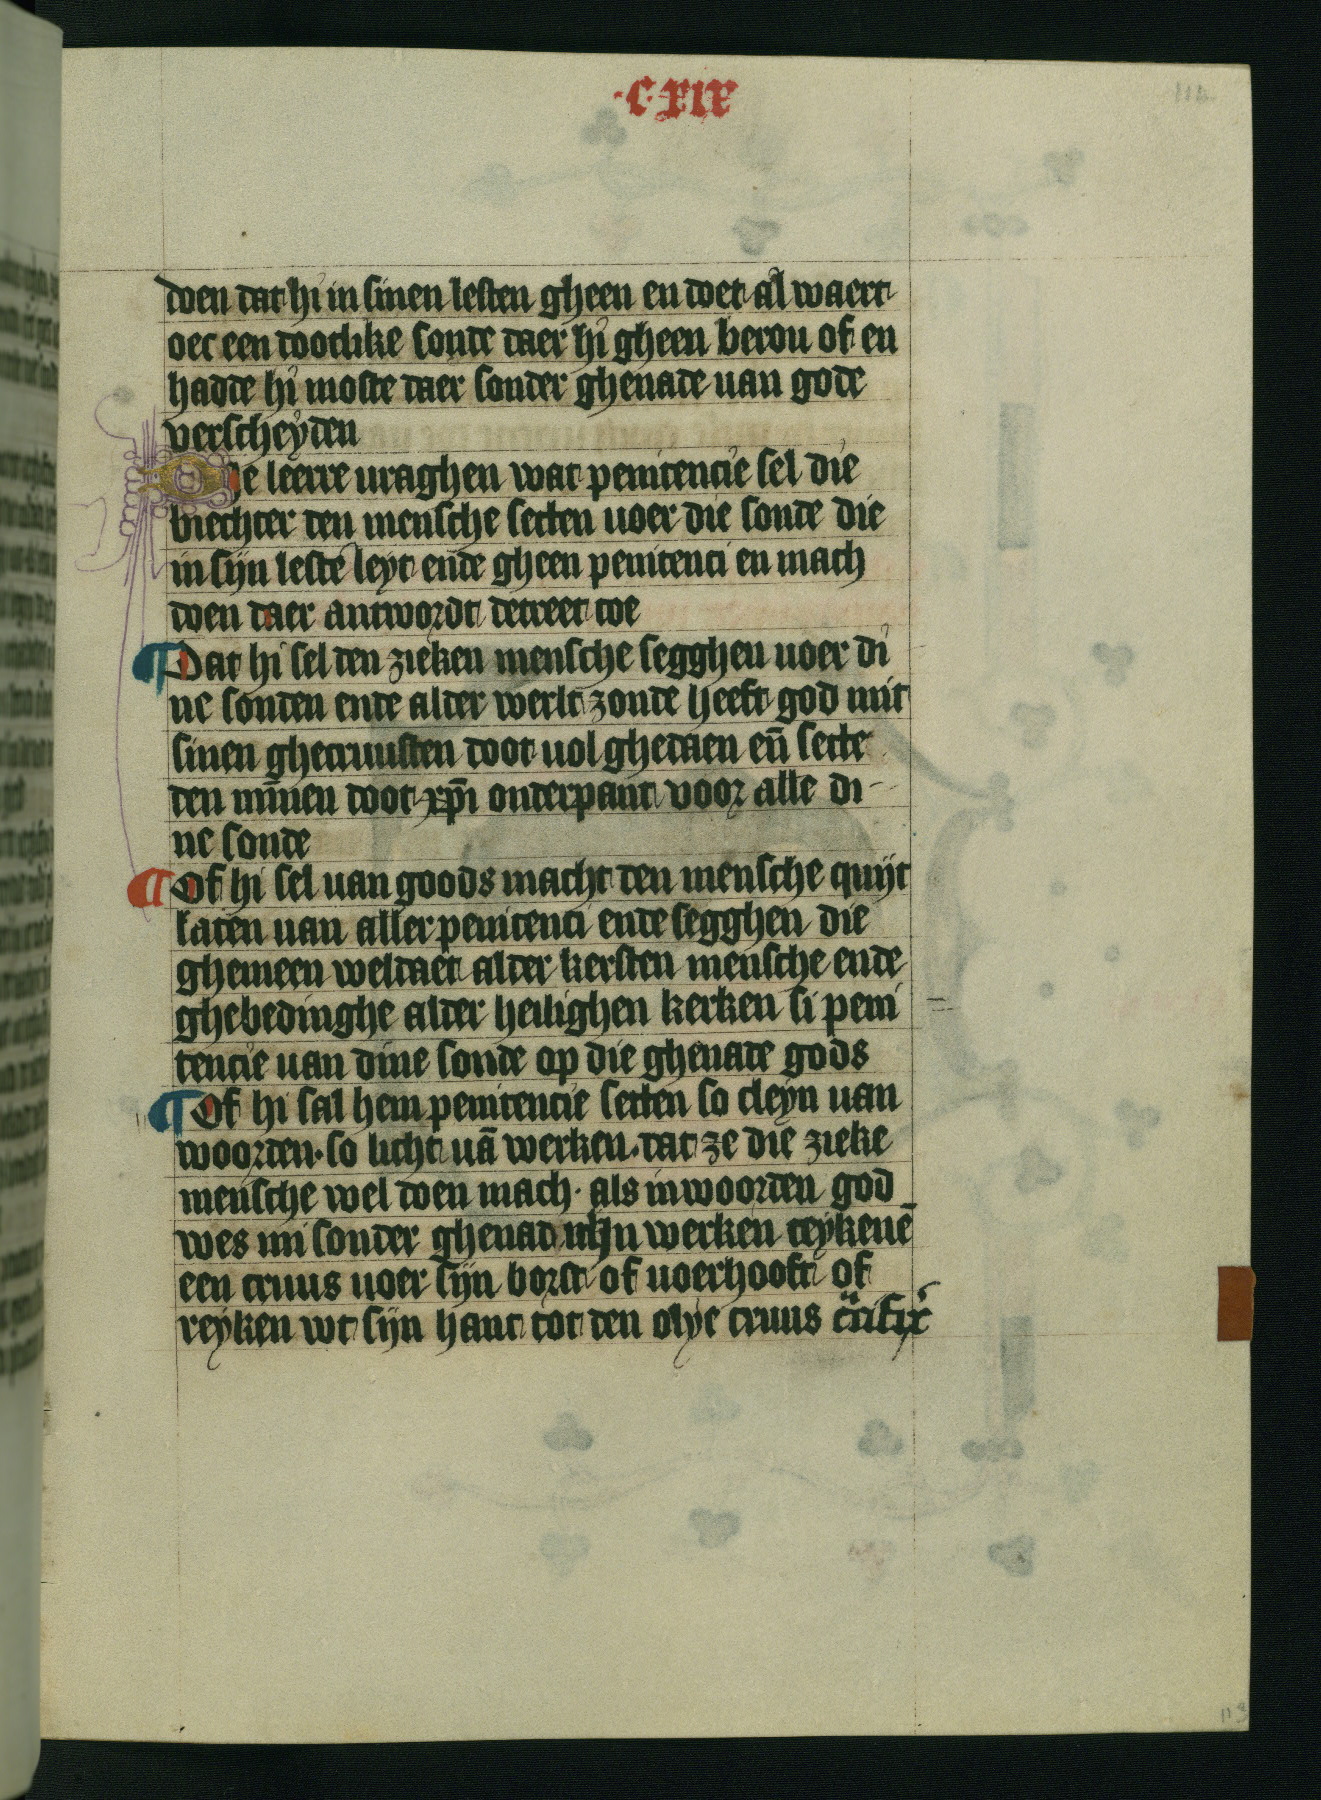 ·C·XIX
doen dat hi in sinen lesten gheen en doet al waert
oec een dootlike sonde daer hi gheen berou of en
hadde hi moste daer sonder ghenade uan gode
verscheyden
De leerre uraghen wat penitencie sel die
biechter den mensche setten uoer die sonde die
in sijn leste leyt ende gheen penitenci en mach
doen daer antwordt decreet toe
¶ Dat hi sel den zieken mensche segghen uoer di
ne sonden ende alder werlt zonde heeft god mit
sinen ghecruusten doot uol ghedaen en̄ sette
den mīnen doot xp̄i onderpant voor alle di-
ne sonde
¶ Of hi sel uan goods macht den mensche quijt
laten uan aller penitenci ende segghen die
ghemeen weldaet alder kersten mensche ende
ghebedinghe alder heilighen kerken si peni
tencie uan dine sonde op die ghenade gods
¶ Of hi sal hem penitencie setten so cleyn uan
woorden· so licht uā werken· dat ze die zieke
mensche wel doen mach· als in woorden god
wes mi sonder ghenad in werken teykenē
een cruus uoer sijn borst of uoerhooft of
reyken wt sijn hant tot den olye cruus
113